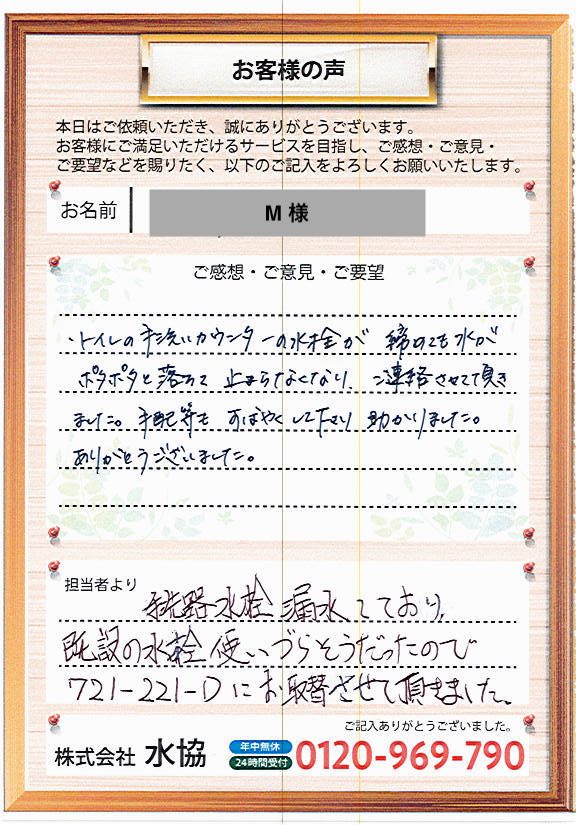 お客様の声
本日はご依頼いただき、誠にありがとうございます。
お客様にご満足いただけるサービスを目指し、ご感想・ご意見・
ご要望などを賜りたく、以下のご記入をよろしくお願いいたします。
お名前
M 様
ご感想・ご意見・ご要望
・トイレの手洗いカウンターの水栓が 締めても水が
ポタポタと落ちて 止まらなくなり、ご連絡させて頂き
ました。手配等も すばやくして下さり 助かりました。
ありがとうございました。
担当者より
手洗器水栓漏水しており、
既設の水栓使いづらそうだったので
721-221-Dにお取替させて頂きました。
ご記入ありがとうございました。
株式会社 水協 年中無休 24時間受付 0120-969-790